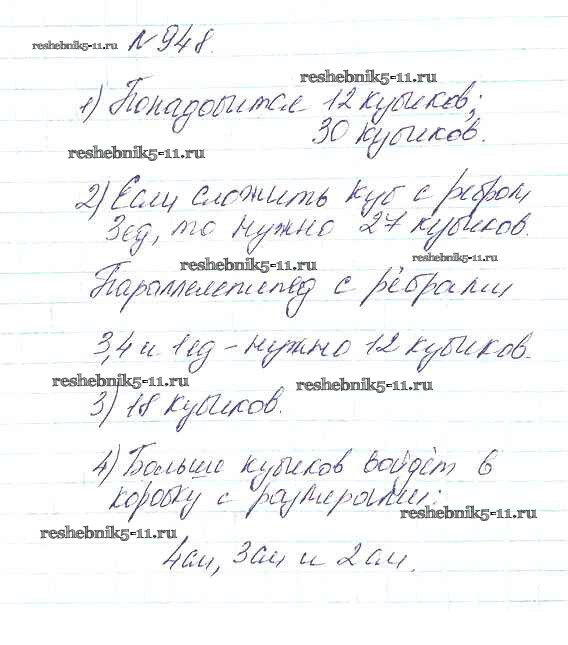 reshebnik5-11.ru №948.
reshebnik5-11.ru
1) Понадобится 12 кубиков;
30 кубиков.
reshebnik5-11.ru
2) Если сложить куб с ребром
3ед, то нужно 27 кубиков.
reshebnik5-11.ru reshebnik5-11.ru
Параллелепипед с рёбрами
3,4 и 1ед - нужно 12 кубиков.
reshebnik5-11.ru reshebnik5-11.ru
3) 18 кубиков.
4) Больше кубиков войдёт в
коробку с размерами:
reshebnik5-11.ru
reshebnik5-11.ru
4см, 3см и 2см.